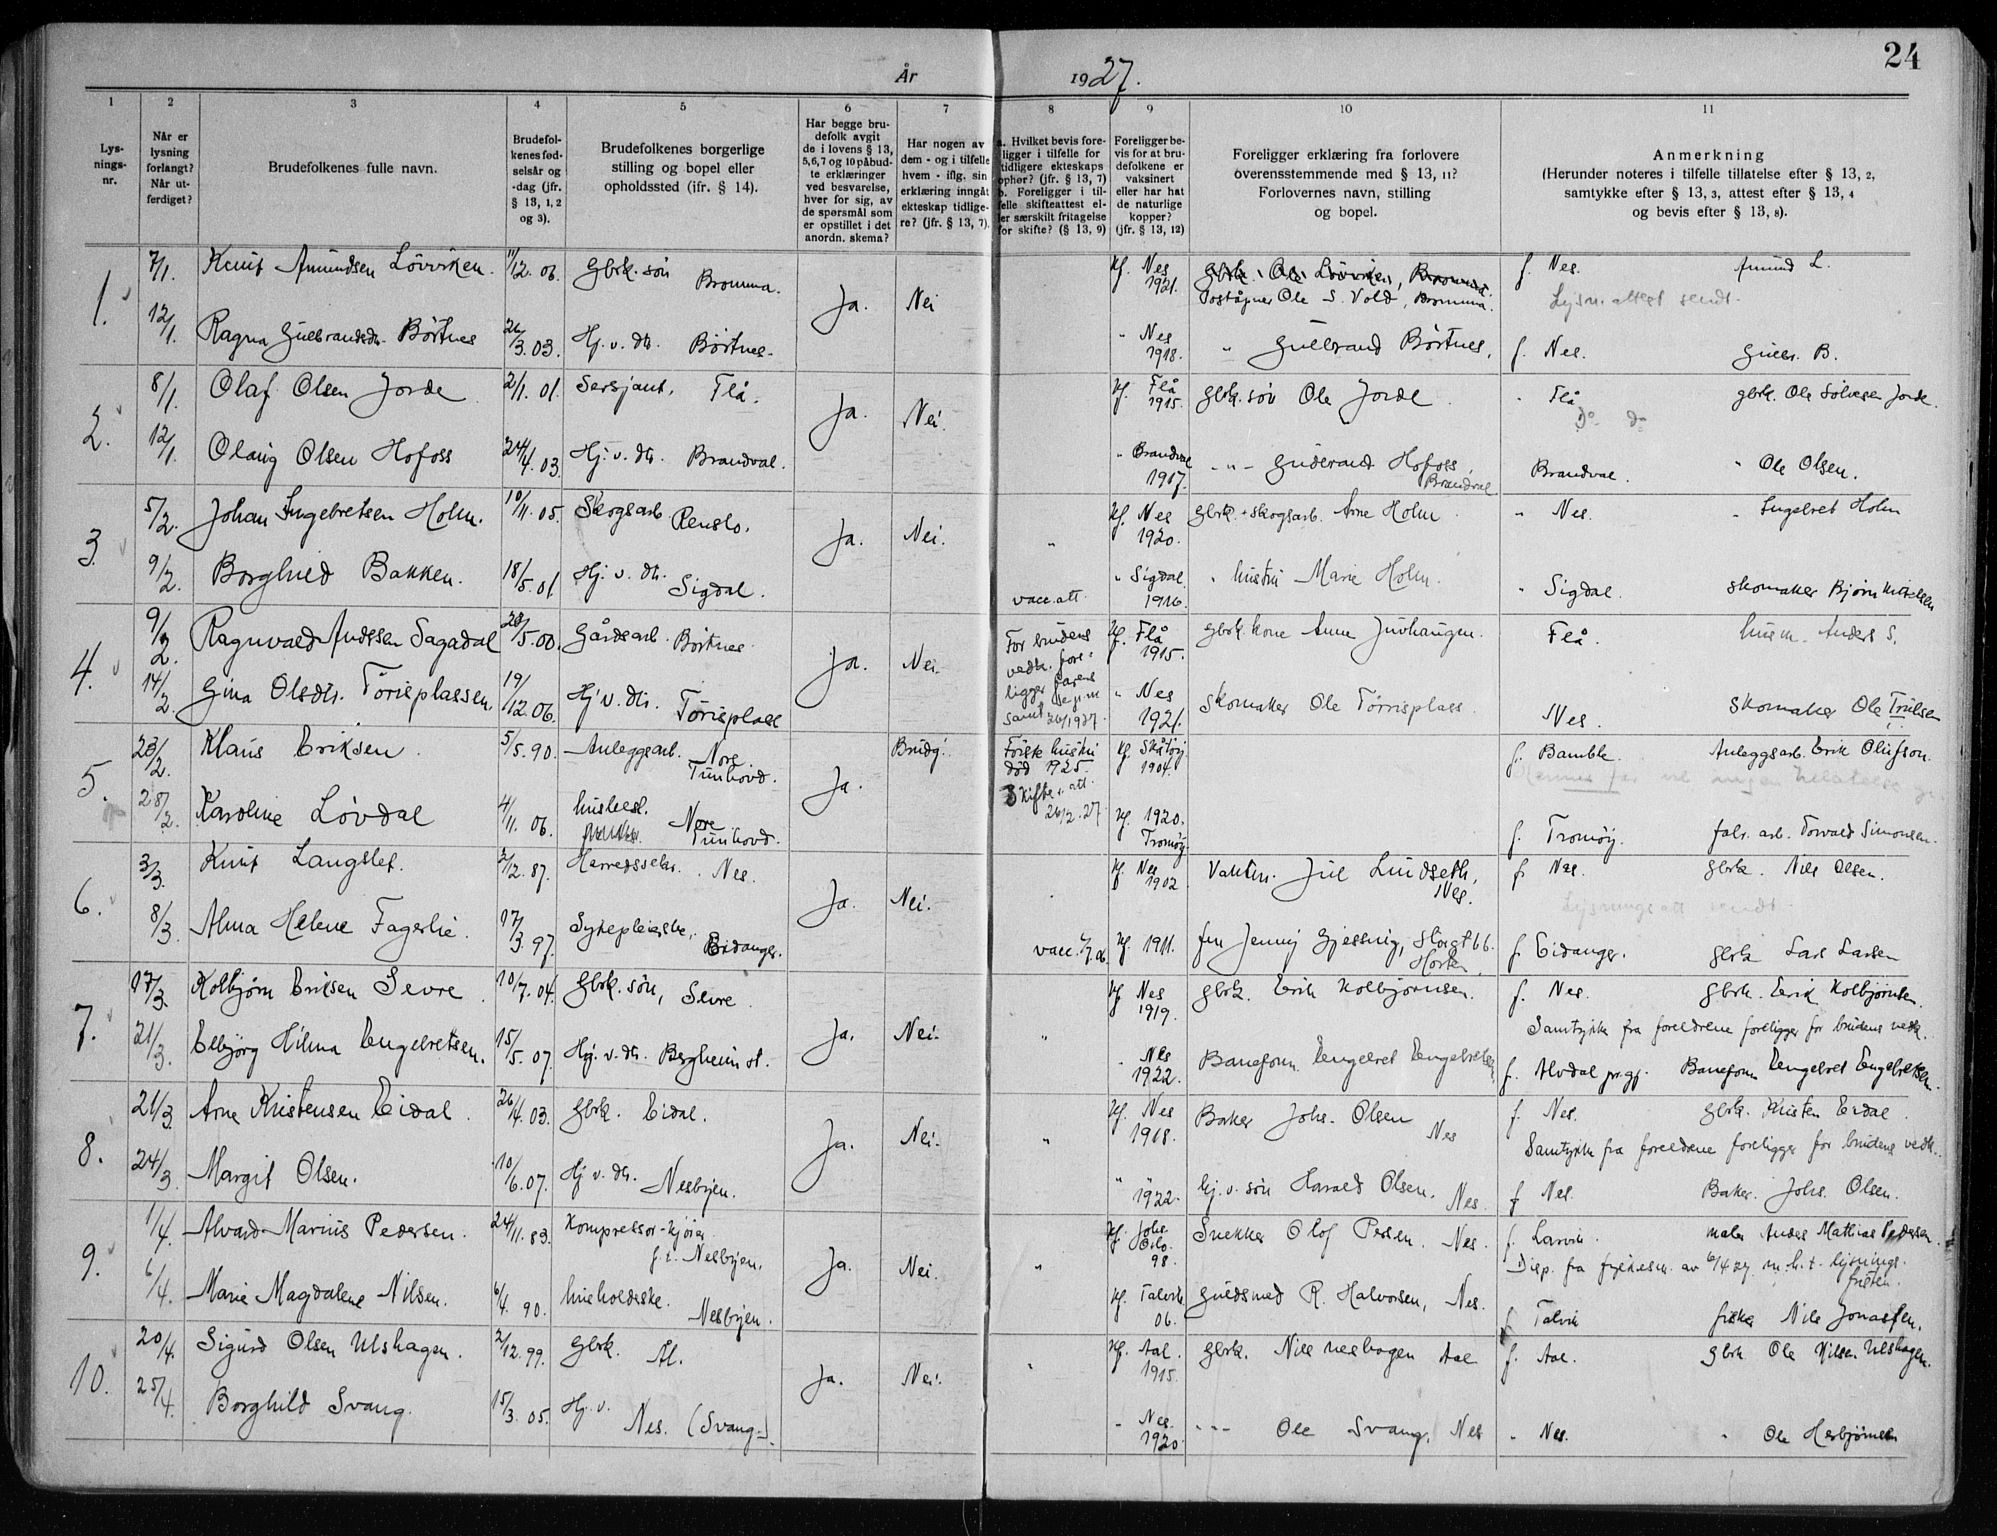 24
År 1927.
1 2 3 4 5 6 7 8 9 10 11
Lys-
nings-
nr.
Når er
lysning
forlangt?
Når ut-
ferdiget?
Brudefolkenes fulle navn.
Brudefol-
kenes fød-
selsår og
-dag (jfr.
§ 13, 1, 2
og 3).
Brudefolkenes borgerlige
stilling og bopel eller
opholdssted (ifr. § 14).
Har begge bru-
defolk avgit
de i lovens § 13,
5,6,7 og 10 påbud-
te erklæringer
ved besvarelse,
hver for sig, av
de spørsmål som
er opstillet i det
anordn. skema?
Har nogen av
dem - og i tilfelle
hvem - iflg. sin
erklæring inngåt
ekteskap tidlige-
re? (jfr. § 13, 7).
a. Hvilket bevis fore-
ligger i tilfelle for
tidligere ekteskaps
ophør? (jfr. § 13, 7)
b. Foreligger i til-
felle skifteattest el-
ler særskilt fritagelse
for skifte? (§ 13, 9)
Foreligger be-
vis for at bru-
defolkene er
vaksinert
eller har hat
de naturlige
kopper?
(jfr. § 13, 12)
Foreligger erklæring fra forlovere
overensstemmende med § 13, 11?
Forlovernes navn, stilling
og bopel.
Anmerkning
(Herunder noteres i tilfelle tillatelse efter § 13, 2,
samtykke efter § 13, 3, attest efter § 13, 4
og bevis efter § 13, 8).
1. 7/1. Knut Amundsen Løvviken. 11/12. 06. Gbrk. søn Bromma. Ja. Nei Kf. Nes 1921. Gbrk. Ole Løvviken, Bromma. f. Nes. Amund L.
Poståpner Ole S. Vold, Bromma. Lysn. attest sendt.
12/1. Ragna Gulbrandsdtr. Børtnes 26/3. 03. Hj. v. dtr. Børtnes. " Nes 1918. " Gulbrand Børtnes, f. Nes. Gulbr. B.
2. 8/1. Olaf Olsen Jorde 2/1. 01. Sersjant, Flå. Ja. Nei. Kf. Flå 1915. gbrk. søn Ole Jorde. " Flå gbrk. Ole Jorde.
Do do
12/1. Olaug Olsen Hofoss 24/4. 03. Hj. v. dtr. Brandval. " Brandval 1917. " Gudbrand Hofoss, Brandval Brandval. " Ole Olsen.
3. 5/2. Johan Ingebretsen Holm. 10/11. 05. Skogsarb. Renslo. Ja. Nei. " Kf. Nes 1920. gbrk. + skogsarb. Arne Holm " Nes. " Ingebret Holm
9/2. Borghild Bakken. 18/5. 01. Hj. v. dtr. Sigdal. vacc. att. " Sigdal 1916. " hustru Marie Holm. " Sigdal. Skomaker Bjørn
4. 9/2. Ragnvald Anderssen Sagadal 28/5. 00. Gårdsarb. Børtnes. Ja. Nei. For brudens vedk. foreligger farens samt. Kf. Flå 1915. gbrk. kone Anne Juvhaugen. Flå. husm. Anders S.
14/2. Gina Olsdtr. Tørrisplassen. 19/12. 06. Hj v. dtr. Tørrisplass " Nes 1921. Skomaker Ole Tørrisplass. Nes. Skomaker Ole Trulsen
5. 23/2. Klaus Eriksen. 5/5. 90. Anleggsarb. Nore Tunhovd. Ja. Brudg. Første hustru død 1925. Kf. Skåtøy 1904. f. Bamble. Anleggsarb. Erik Olufson.
Skifte. att. 26/2. 27
28/2. Karoline Løvdal 4/11. 06. husbest. Nore Tunhovd Kf. 1920. Tromøy f. Tromøy. fabr. arb. Torvald Simonsen.
6. 3/3. Knut Langslet. 2/12. 87. Herredssekr. Nes. Ja. Nei. Kf. Nes 1902 Vaktm. Jul Lindseth, Nes. f. Nes. gbrk. Nils Olsen.
Lysningsatt sendt.
8/3. Alma Helene Fagerlie. 17/3. 97. Sykepleierske, Eidanger. vacc. Kf. 1911. fru Jenny Gjessing, Storgt 66. Horten f Eidanger. gbrk Lars Larsen
7. 17/3. Kolbjørn Eriksen Sevre. 10/7. 04. Gbrk. søn, Sevre. Ja. Nei. " Kf Nes 1919. gbrk. Erik Kolbjørnsen. f. Nes. Gbrk. Erik Kolbjørnsen.
Samtykke fra foreldrene foreligger for brudens vedk.
21/3. Elbjørg Hilma Engebretsen. 15/5. 07. Hj. v. dtr. Bergheim st. " Nes 1922. Baneform. Engebret Engebretsen f. Alvdal pr.gj. Baneform Engebret Engebretsen.
8. 21/3. Arne Kristensen Eidal. 26/4. 03. Gbrk. Eidal. Ja. Nei. " Kf. Nes 1918. Baker Johs. Olsen Nes f. Nes. Gbrk. Kristen Eidal.
Samtykke fra foreldrene foreligger for brudens vedk.
24/3. Margit Olsen. 10/6. 07. Hj v. dtr. Nesbyen. " " 1922. hj. v. søn Harald Olsen. Nes. f Nes. Baker. Johs. Olsen.
9. 1/4. Alvard Marius Pedersen. 24/11. 83. Kompressor-kjører f. t. Nesbyen. Ja. Nei. " Kf Johs Oslo. 98. Snekker Olof Persen. Nes. f. Larvik. maler Anders Mathias Pedersen.
Disp. fra fylkesm. av 6/4 27 m. h. t. lysningsfristen.
6/4. Marie Magdalene Nilsen. 6/4. 90. husholderske. Nesbyen. Kf. Talvik 06. Gulsmed R. Halvorsen, Nes. f Talvik fisker Nils Jonassen.
10. 20/4. Sigurd Olsen Ulshagen. 2/12. 99. Gbrk. Ål. Ja. Nei. " Kf. Aal. 1915. gbrk. Nils Ulshagen Aal f. Aal. Gbrk Ole Nilsen Ulshagen.
25/4. Borghild Svang. 15/3. 05. Hj. v. Nes. (Svang). " Nes. 1920. " Ole Svang. Nes " Nes. " Ole Herbjørnsen